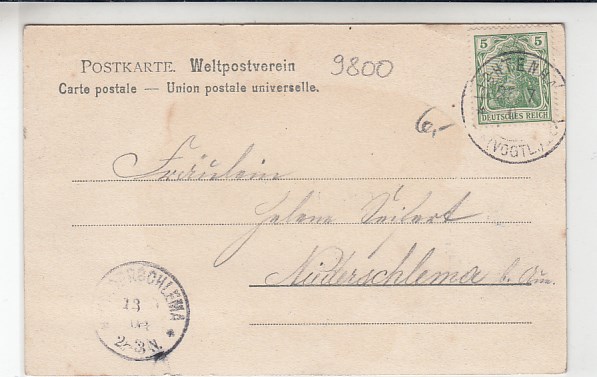 POSTKARTE. Weltpostverein
Carte postale — Union postale universelle.
9800
6,-
5 5
DEUTSCHES REICH
(VOGTL.)
Fräulein
Helene Seifert
Niederschlema b. Aue.
NIEDERSCHLEMA
13
2-3 N.